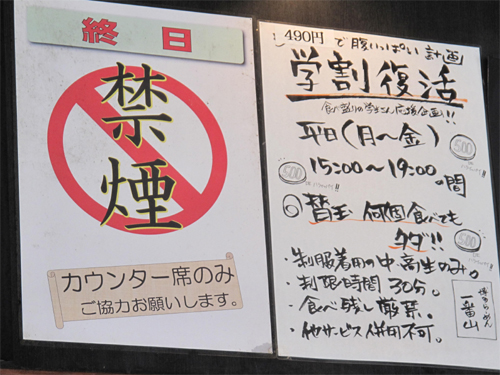 終日
禁煙
カウンター席のみ
ご協力お願いします。
490円で腹いっぱい計画
学割復活
食べ盛りの学生さん応援企画!!
平日(月〜金)
15:00〜19:00の間
替玉 何個食べても
タダ!!
・制服着用の中高生のみ。
・制限時間30分。
・食べ残し厳禁。
・他サービス併用不可。
500
500
500
博多らーめん
一番山